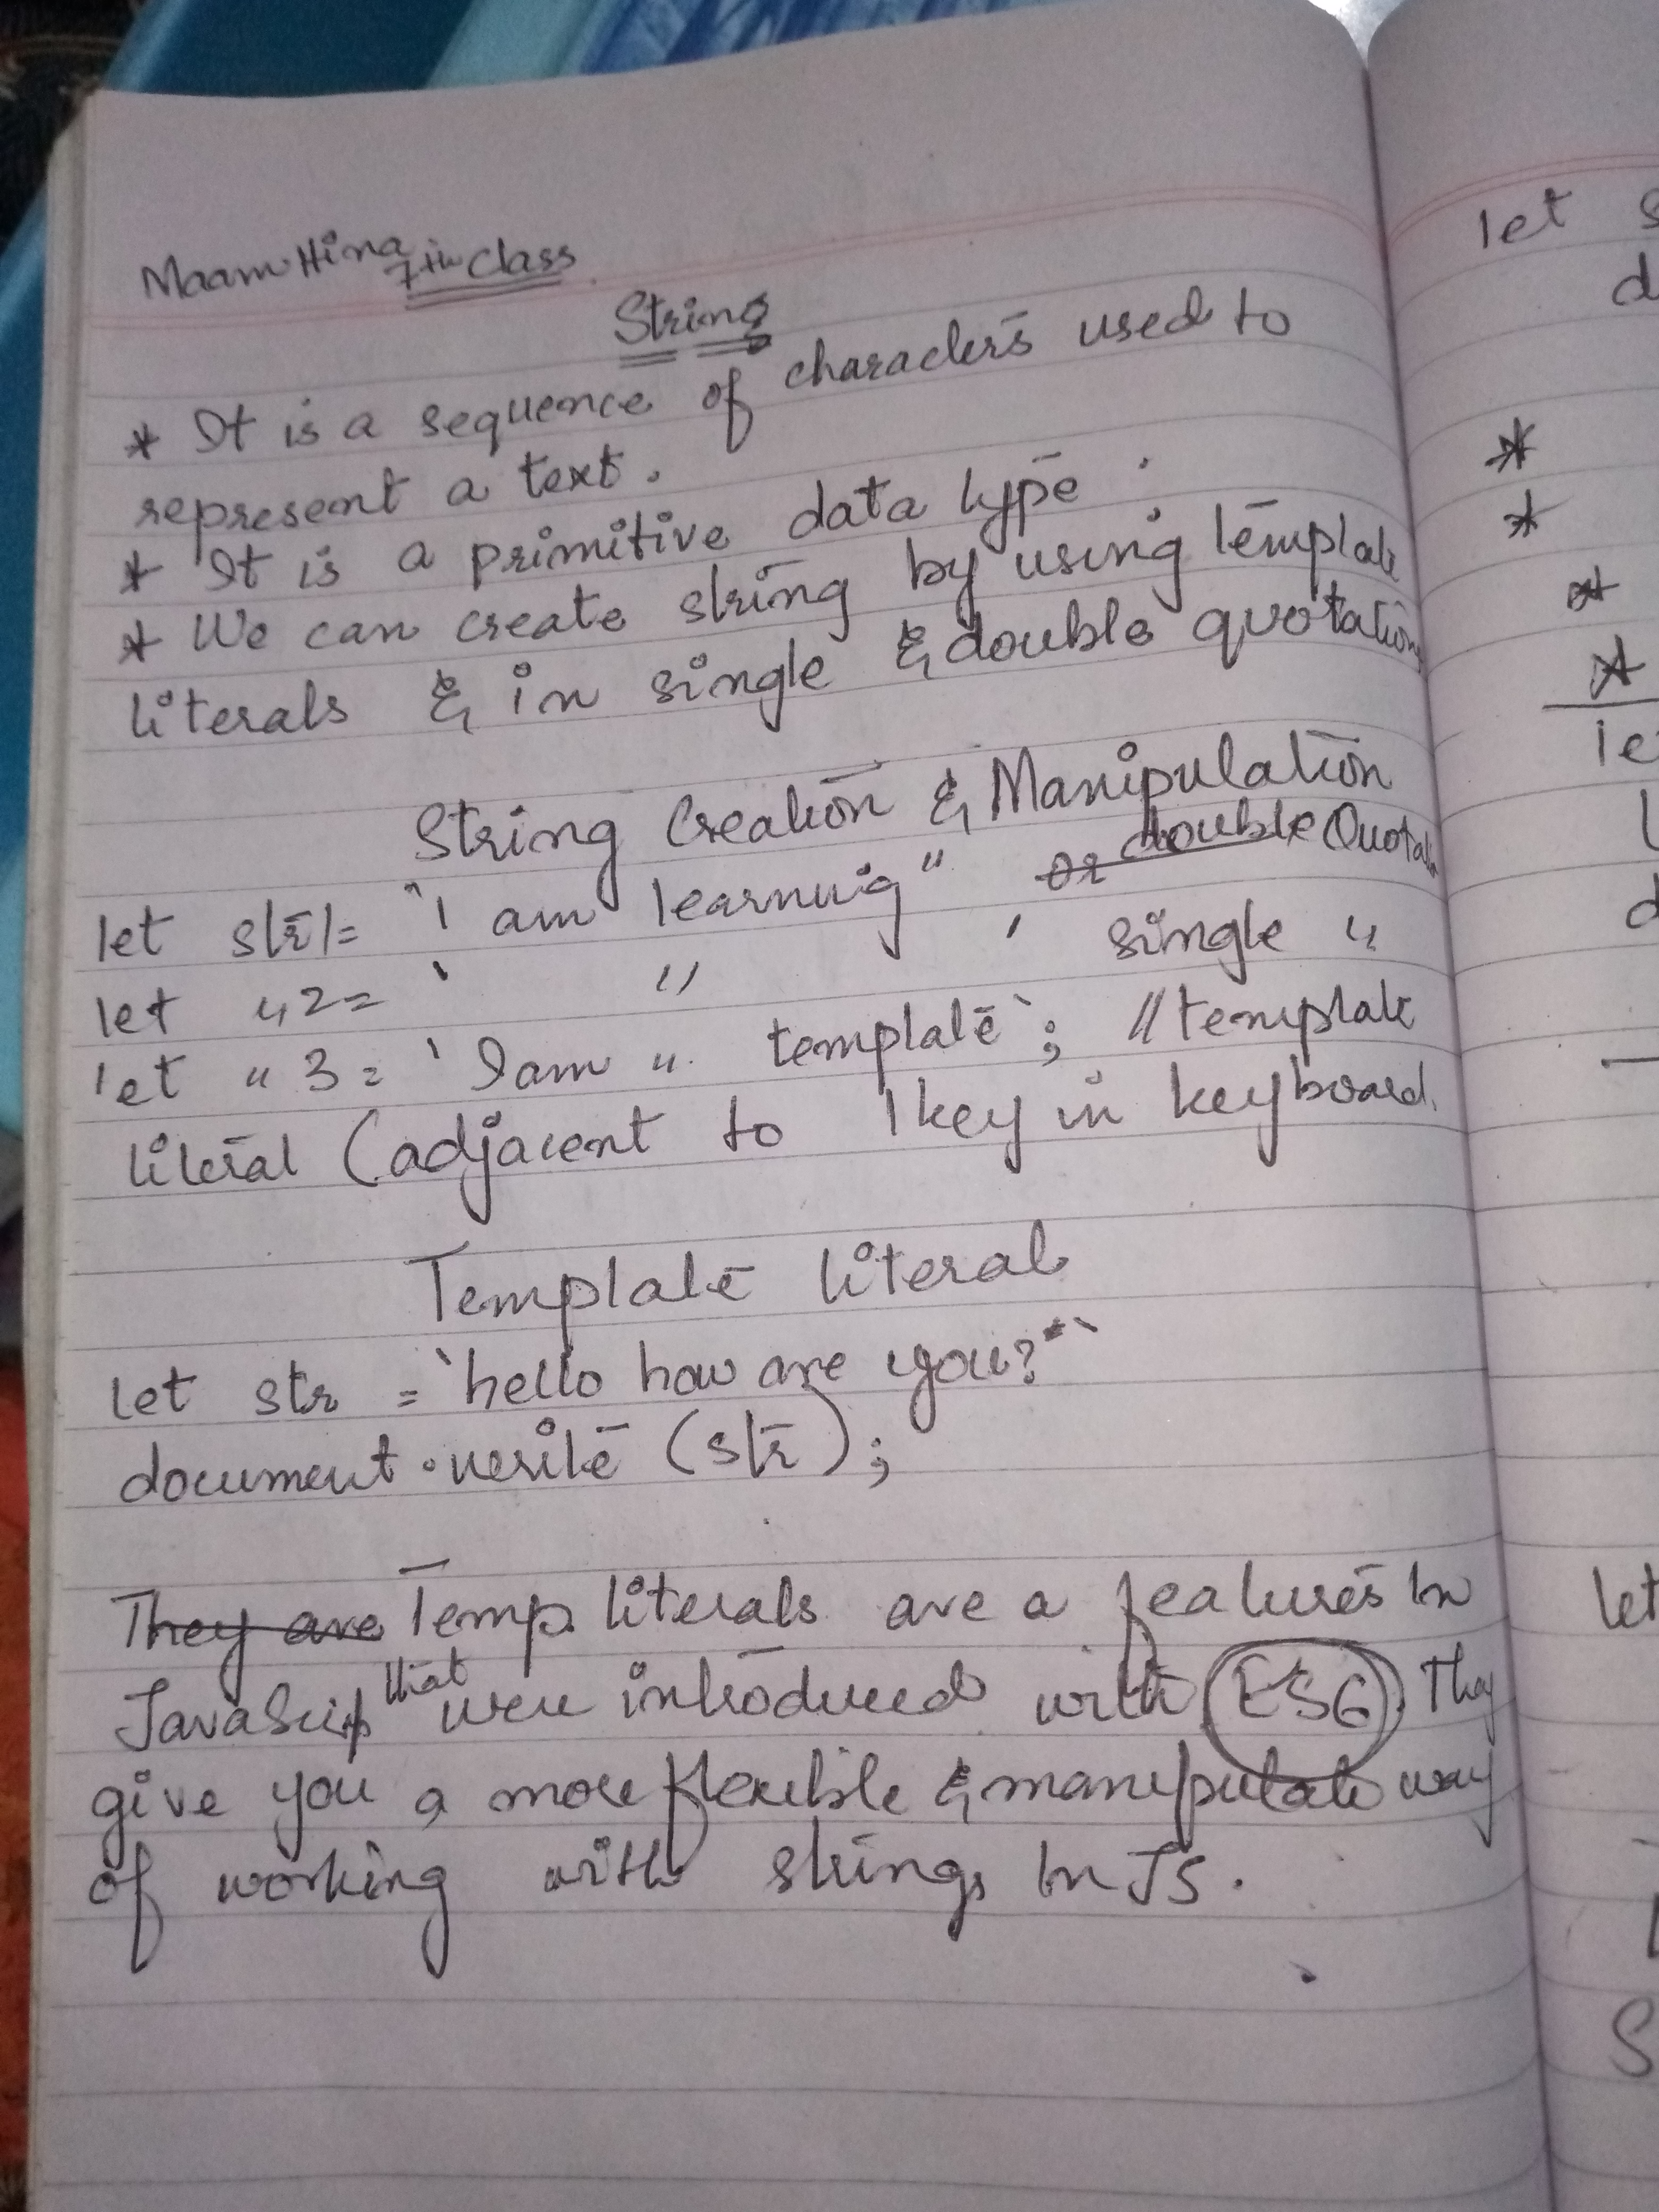 Maam Hina 7th Class
String
* It is a sequence of characters used to
represent a text.
* It is a primitive data type.
* We can create string by using template
literals & in single & double quotation
String Creation & Manipulation
let str1= "I am learning" or double Quotation
let "2= ' " ' single "
let "3= ` I am " template`; //template
literal (adjacent to 1 key in keyboard.
Template literal
let str = `hello how are you?`
document.write (str);
They are Temp. literals are a features in
JavaScript that were introduced with ES6. They
give you a more flexible & manipulate way
of working with strings in JS.
let s
d
*
*
*
*
le
d
let
S